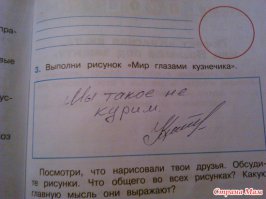 3. Выполни рисунок «Мир глазами кузнечика».
Мы такое не
курим
Посмотри, что нарисовали твои друзья. Обсуди-
те рисунки. Что общего во всех рисунках? Какую
главную мысль они выражают?
Страна Мам